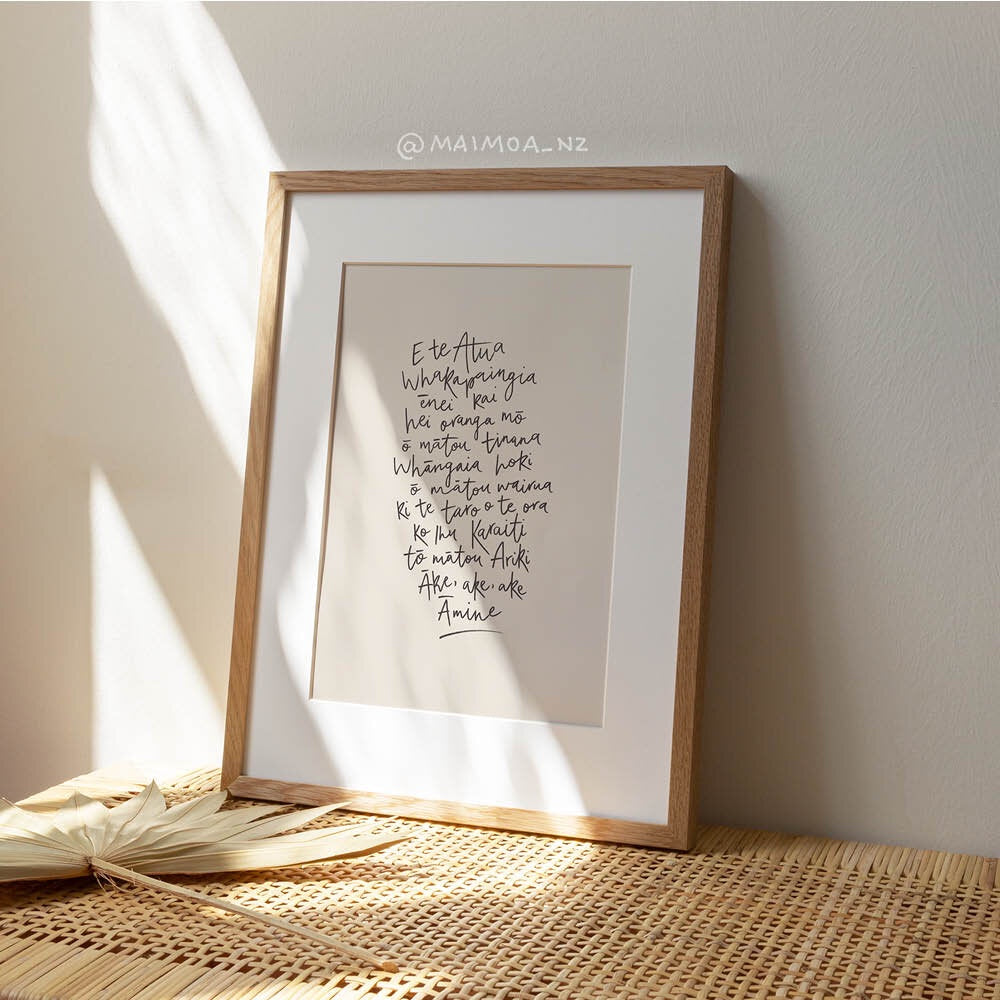 @MAIMOA_NZ
E te Atua
Whakapaingia
ēnei kai
hei oranga mō
ō mātou tinana
Whāngaia hoki
ō mātou wairua
ki te taro o te ora
ko Ihu Karaiti
tō mātou Ariki
Āke, ake, ake
Āmine